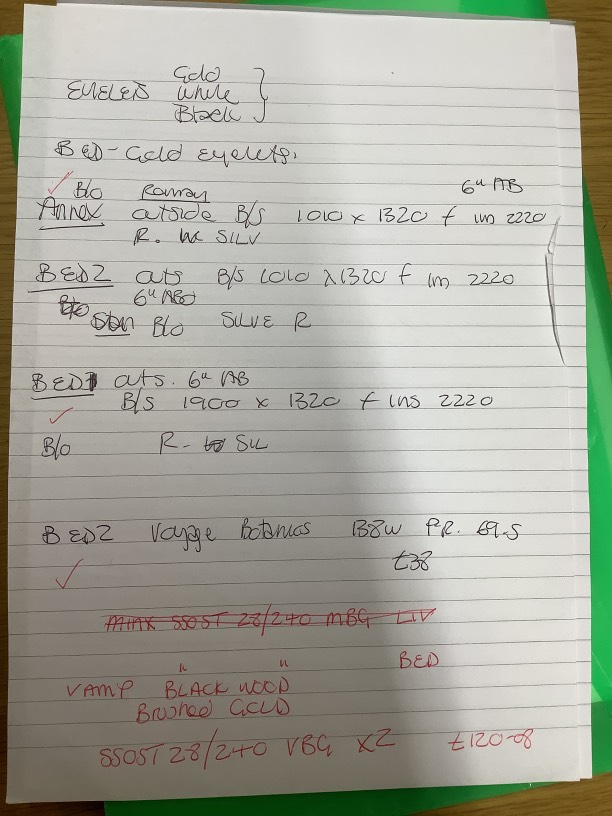 Gold
EYELETS White
Black
BED - Gold Eyelets.
B/O Romany 6" AB
Annex outside B/S 1010 x 1320 f ins 2220
R. SILV
BED 2 outs B/S 1010 x 1320 f ins 2220
6" ABO
B/O SILVE R
BED 1 outs. 6" AB
B/S 1900 x 1320 f ins 2220
B/O R- SIL
BED 2 Voyage Botanics 138W PR. 69.5
£38
MINX SSOST 28/240 MBG LIV
" " BED
VAMP BLACK WOOD
Brushed GOLD
SSOST 28/240 VBG x2 £120-08